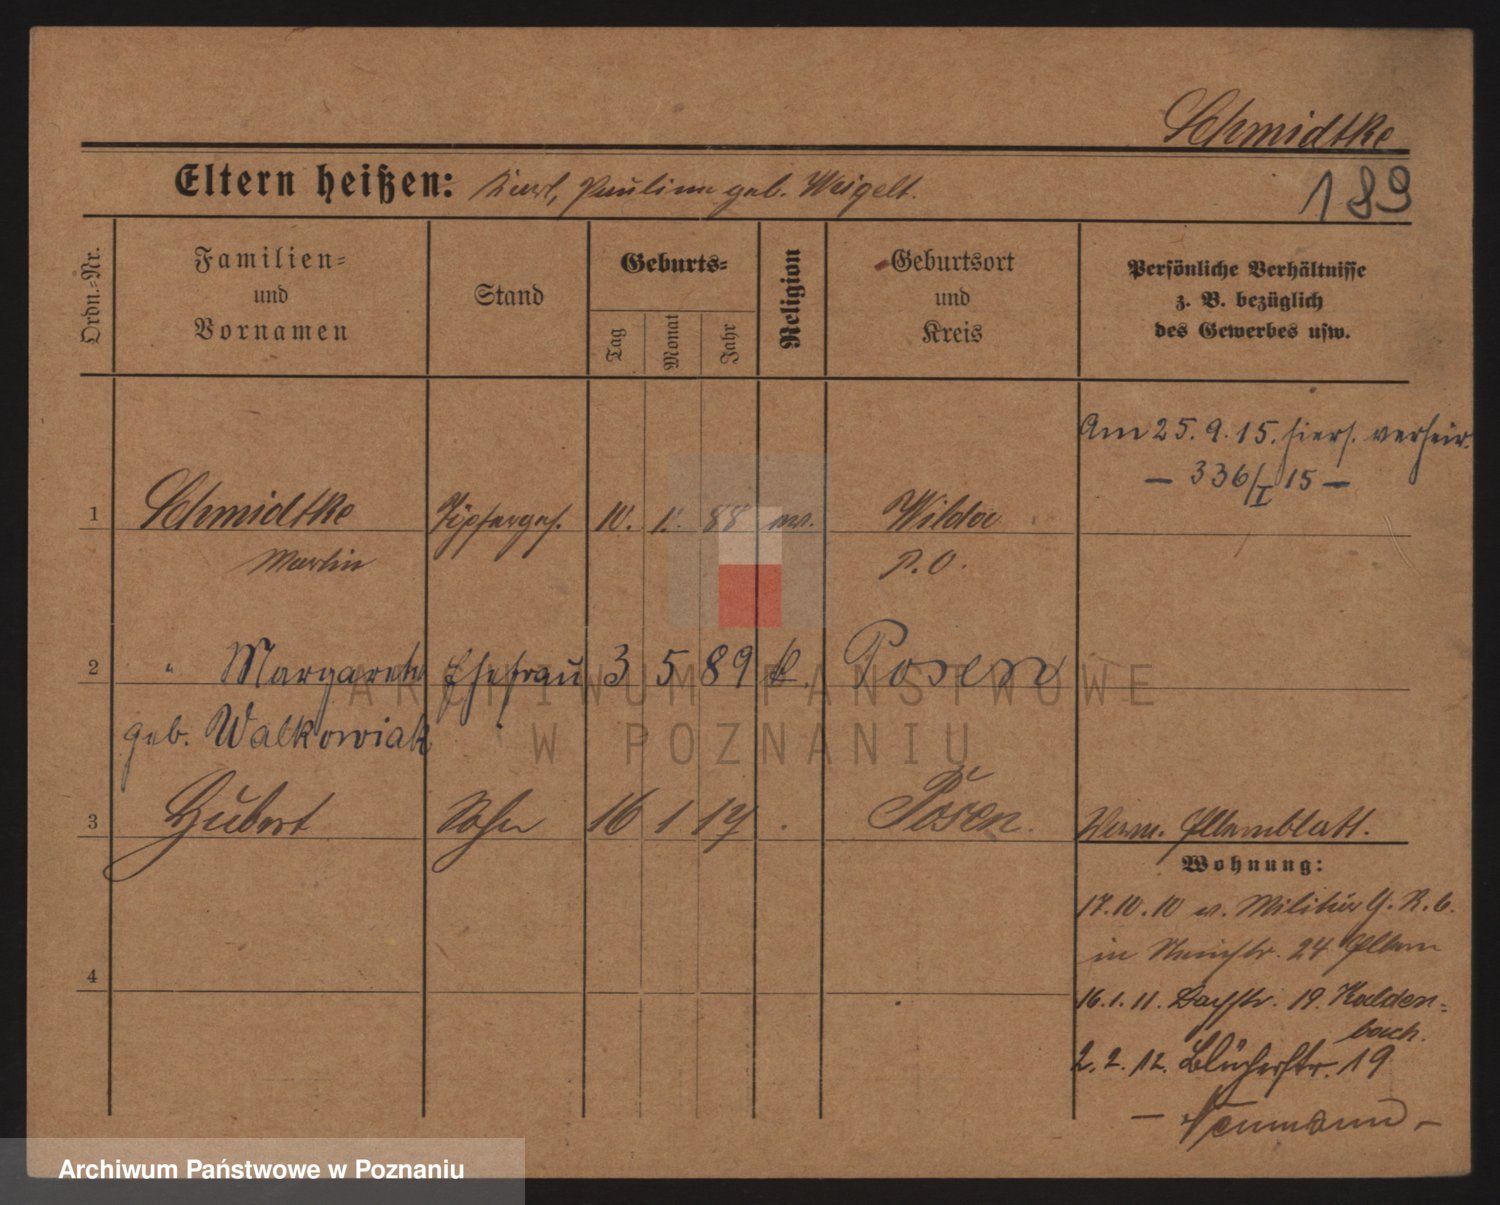 Schmidtke
Eltern heißen: Karl, Pauline geb. Weigelt.
189
Ordn.-Nr.
Familien-
und
Vornamen
Stand
Geburts-
Tag
Monat
Jahr
Religion
Geburtsort
und
Kreis
Persönliche Verhältnisse
z. B. bezüglich
des Gewerbes usw.
Am 25.9.15. hiers. verheir.
— 336/I 15 —
1 Schmidtke Töpferges. 10. 1. 88 ev. Wilda
Martin P.O.
2 " Margarete Ehefrau 3 5 89 k. Posen
geb. Walkowiak
3 Hubert Sohn 16 1 17 . Posen. Verm. Elternblatt.
Wohnung:
17.10.10 v. Militär G.R.6.
in 24 Eltern
4
16.1.11. 19. Kalden-
bach.
2.2.12. Blücherstr. 19
— Neumann —
ARCHIWUM PAŃSTWOWE
W POZNANIU
Archiwum Państwowe w Poznaniu